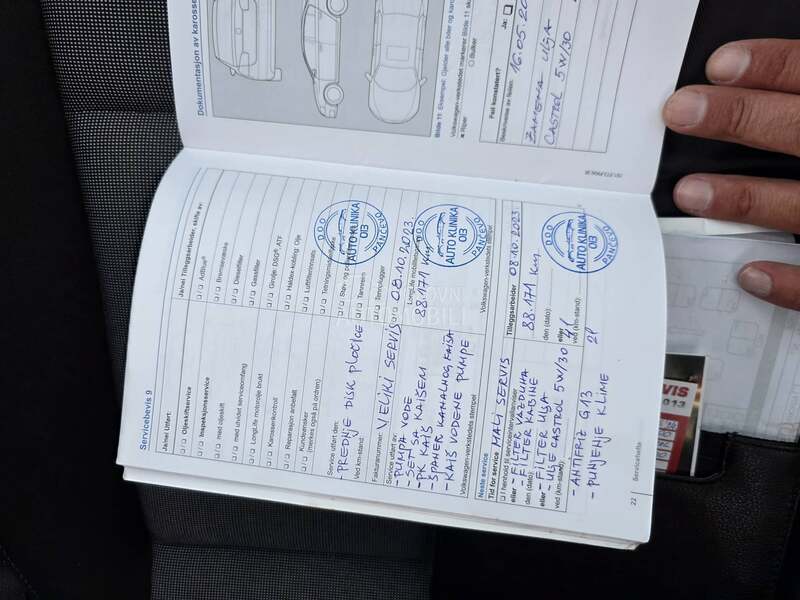 Dokumentasjon av karosse
Bilde 11 Eksempel: Gjelder alle biler og karo
Volkswagen-verkstedet markerer Bilde 11 sk
Riper
Bulker
Feil konstatert?
Ja:
Beskrivelse av feilen:
16.05.20
ZAMENA ULJA
CASTROL 5W/30
Servicebevis 9
Ja/nei Utført:
Oljeskiftservice
Inspeksjonsservice
med oljeskift
med utvidet serviceomfang
LongLife motorolje brukt
Karosserikontroll
Reparasjon anbefalt
Kundeønsker
(merkes også på ordren)
Ja/nei Tilleggsarbeider, skifte av:
AdBlue®
Bremsevæske
Dieselfilter
Gassfilter
Girolje: DSG®, ATF
Haldex-kobling: Olje
Luftfilterinnsats
Tannrem
Tennplugger
Service utført den:
- PREDNJE DISK PLOČICE
Ved km-stand:
Fakturanummer:
VELIKI SERVIS 08.10.2023
Service utført av:
- PUMPA VODE
- SET SA
- PK KAIŠ KAIŠEM 88.171 Km
- ŠPANER KANALNOG KAIŠA
- KAIS VODENE PUMPE
Volkswagen-verkstedets stempel
Volkswagen-verkstedets stempel
DOO
AUTO KLINIKA
013
PANČEVO
DOO
AUTO KLINIKA
013
PANČEVO
Neste service
Tid for service
MALI SERVIS
Tilleggsarbeider
08.10.2023
eller
- FILTER VAZDUHA
den (dato):
- FILTER KABINE
88.171 Km
den (dato)
eller
- FILTER ULJA
eller
ved (km-stand):
- ULJE CASTROL 5W/30
ved (km-stand)
- ANTIFRIZ G13 2l
- PUNJENJE KLIME
DOO
AUTO KLINIKA
013
PANČEVO
22
Servicehefte